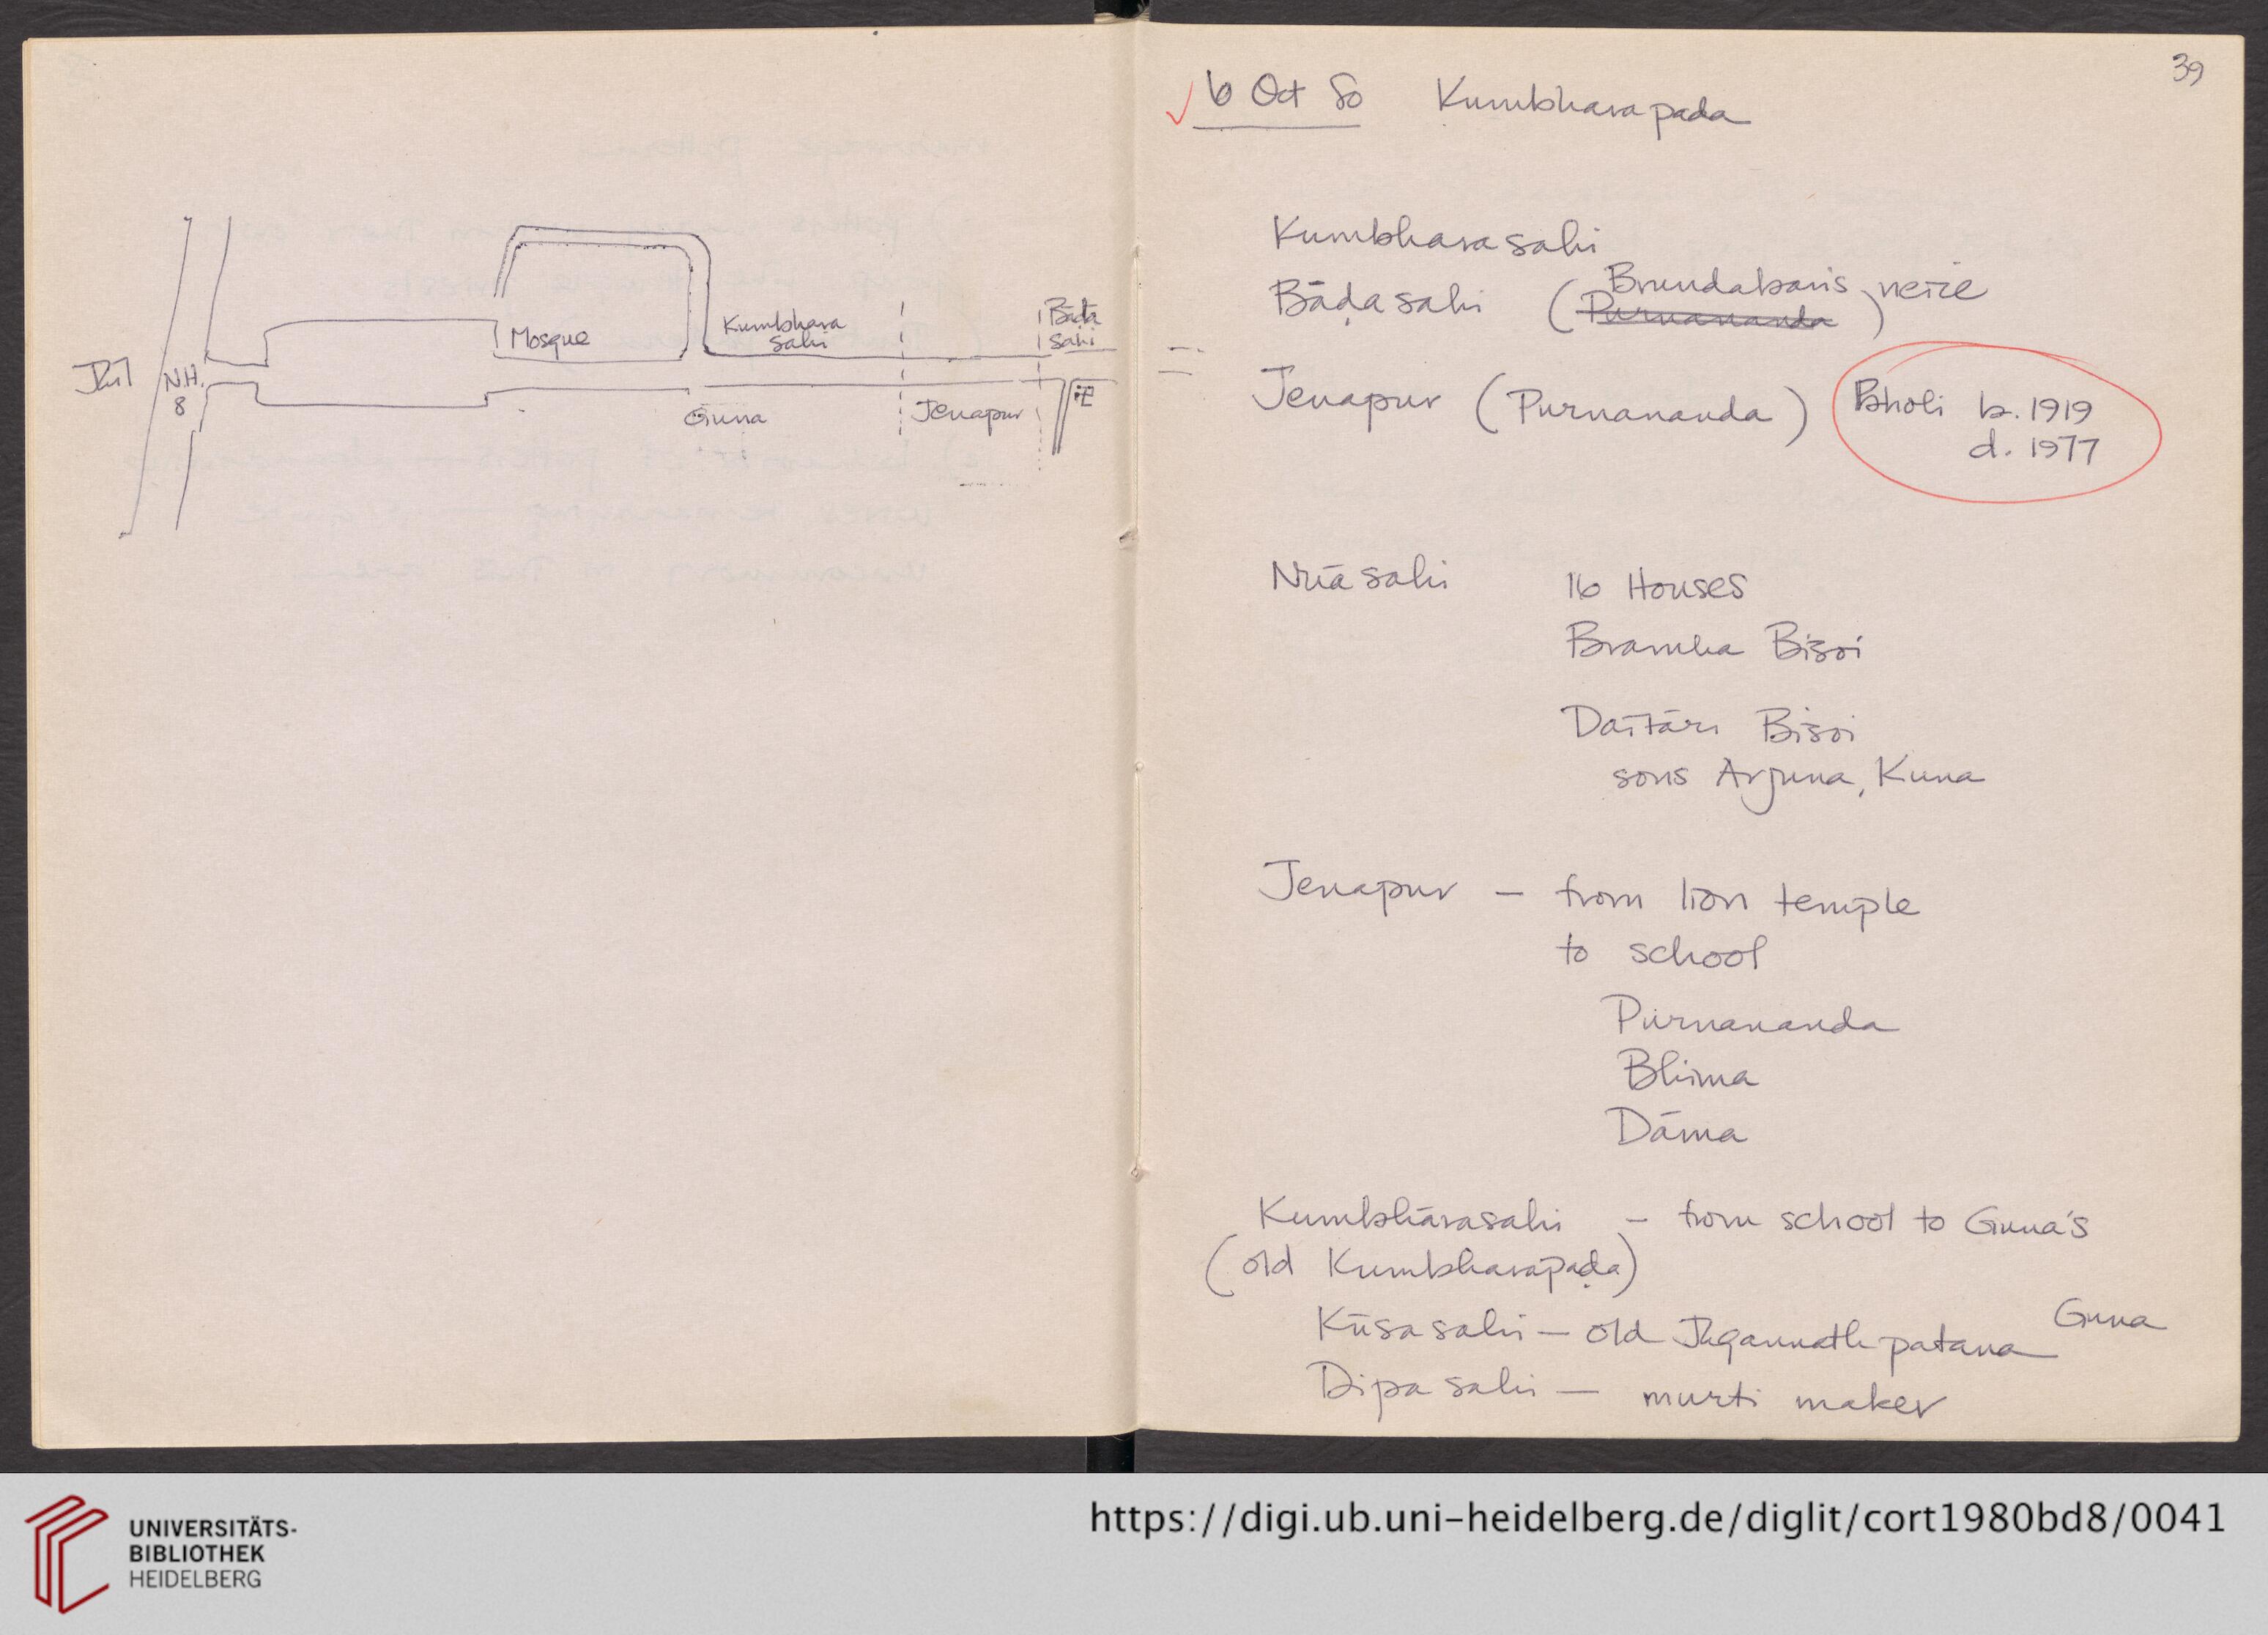 Jail
N.H.
8
Mosque
Kumbhara
Sahi
Bāḍa
Sahi
Guna
Jenapur
39
6 Oct 80 Kumbharapada
Kumbhara sahi
Bāḍa sahi (Purnananda) Brundaban's
Jenapur (Purnananda) Bholi b. 1919
d. 1977
Nuā sahi 16 Houses
Bramha Bisoi
Daitāri Bisoi
sons Arjuna, Kuna
Jenapur – from lion temple
to school
Purnananda
Bhima
Dāma
Kumbhārasahi – from school to Guna's
(old Kumbharapaḍa)
Kusa sahi – old Jagannath patana Guna
Dipa sahi – murti maker
UNIVERSITÄTS-
BIBLIOTHEK
HEIDELBERG
https://digi.ub.uni-heidelberg.de/diglit/cort1980bd8/0041